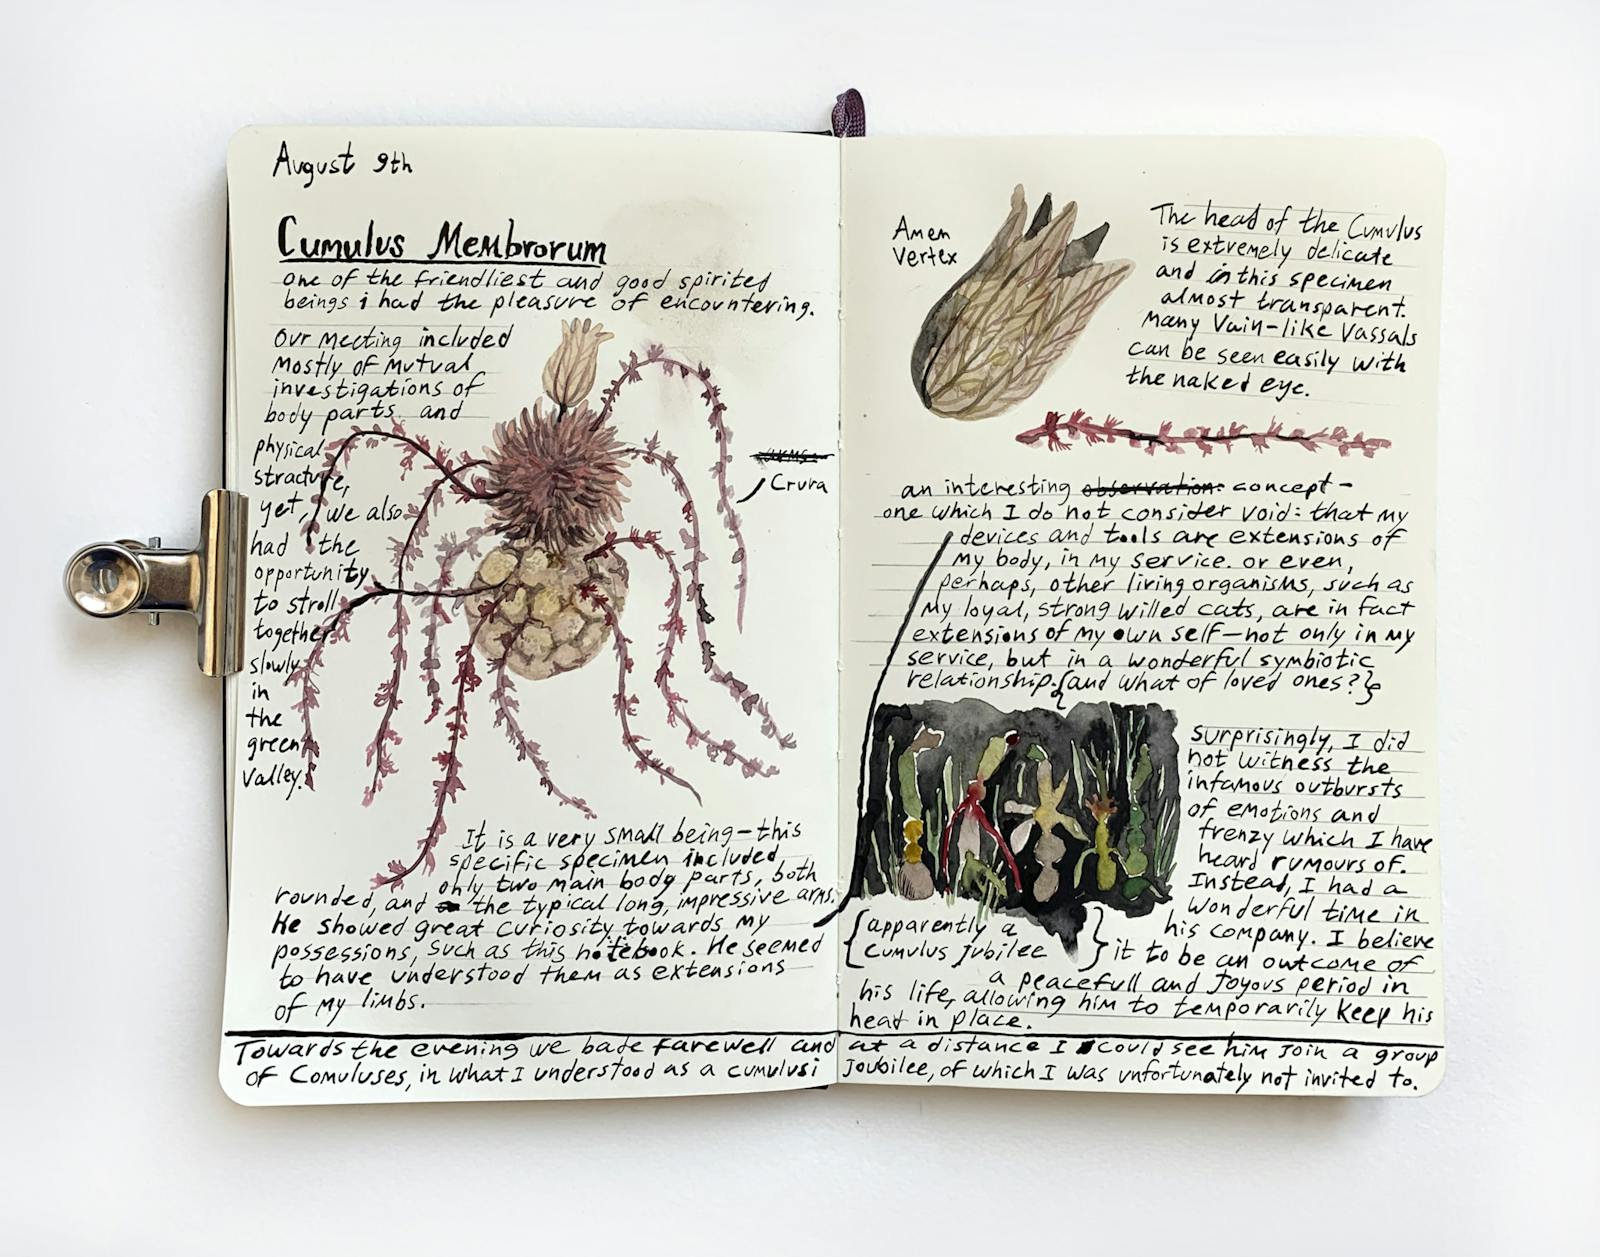 August 9th
Cumulus Membrorum
one of the friendliest and good spirited
beings i had the pleasure of encountering.
Our meeting included
mostly of mutual
investigations of
body parts and
physical
structure,
yet, we also
had the
opportunity
to stroll
together
slowly
in
the
green
valley.
Crura
It is a very small being—this
specific specimen included,
only two main body parts, both
rounded, and the typical long, impressive arms.
He showed great curiosity towards my
possessions, such as this notebook. He seemed
to have understood them as extensions
of my limbs.
Amen
Vertex
The head of the Cumulus
is extremely delicate
and in this specimen
almost transparent.
Many Vain-like Vassals
can be seen easily with
the naked eye.
an interesting observation: concept—
one which I do not consider void: that my
devices and tools are extensions of
my body, in my service. or even,
perhaps, other living organisms, such as
my loyal, strong willed cats, are in fact
extensions of my own self—not only in my
service, but in a wonderful symbiotic
relationship. {and what of loved ones?}
Surprisingly, I did
not witness the
infamous outbursts
of emotions and
frenzy which I have
heard rumours of.
Instead, I had a
wonderful time in
his company. I believe
{apparently a
cumulus jubilee}
it to be an outcome of
a peacefull and joyous period in
his life, allowing him to temporarily keep his
head in place.
Towards the evening we bade farewell and at a distance I could see him join a group
of Comuluses, in what I understood as a cumulusi Joubilee, of which I was unfortunately not invited to.